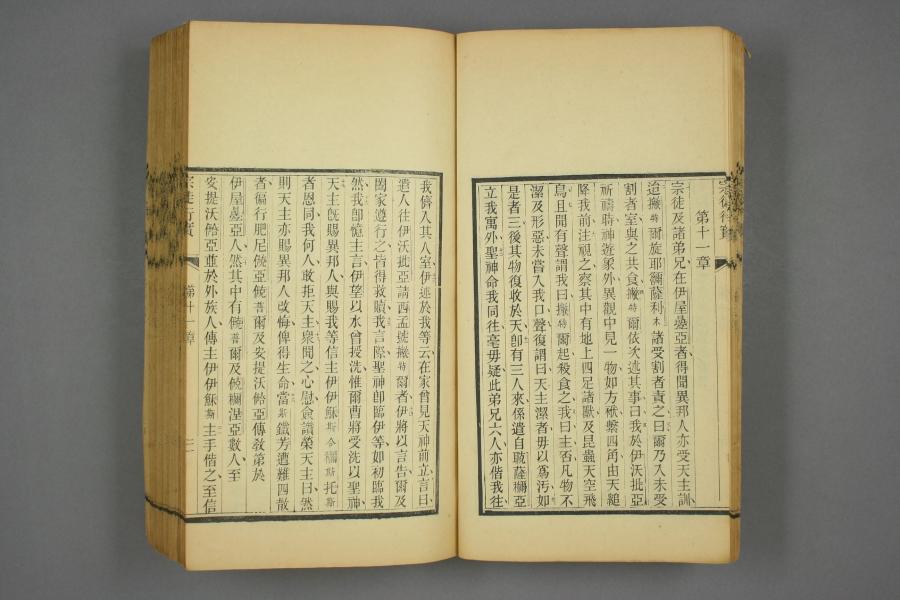 第十一章
宗徒及諸弟兄在伊屋亞者得聞異邦人亦受天主訓
迨撇特爾旋耶薩利木諸受割者責之曰爾乃入未受
割者室與之共食撇特爾依次述其事曰我於伊沃批亞
祈禱時神遊象外異觀中見一物如方袱繫四角由天縋
降我前注視之察其中有地上四足諸獸及昆蟲天空飛
鳥且聞有聲謂我曰撇特爾起殺食之我曰主否凡物不
潔及形惡未嘗入我口聲復謂曰天主潔者毋以為污如
是者三後其物復收於天卽有三人來係遣自薩亞
立我寓外聖神命我同往毫毋疑此弟兄六人亦偕我往
我儕入其人室伊述於我等云在家曾見天神前立言曰
遣人往伊沃批亞請西孟號撇特爾者伊將以言告爾及
闔家遵行之皆得救贖我言際聖神卽臨伊等如初臨我
然我卽憶主言伊望以水曾授洗惟爾曹將受洗以聖神
天主旣賜異邦人與賜我等信主伊伊穌斯合托斯
者恩同我何人敢拒天主衆聞之心慰僉讚榮天主曰然
則天主亦賜異邦人改悔俾得生命當斯鐵芳遭難四散
者徧行肥尼亞及安提沃亞傳敎第於
伊屋亞人然其中有爾及亞數人至
安提沃亞並於外族人傳主伊伊穌斯主手偕之至信
宗徒行實
第十一章